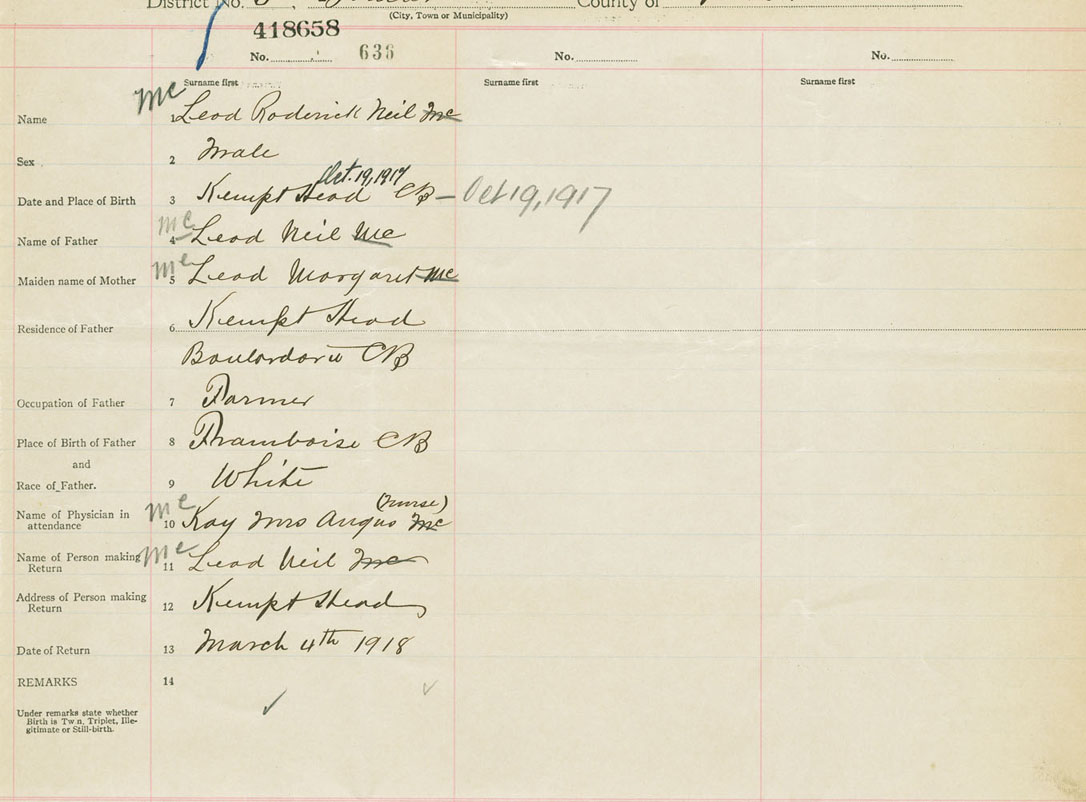 District No.
County of
(City, Town or Municipality)
418658
No. 636
No.
No.
Surname first
Surname first
Surname first
Name 1 Mc Leod Roderick Neil Mc
Sex 2 Male
Oct. 19, 1917
Date and Place of Birth 3 Kempt Head CB – Oct 19, 1917
Name of Father 4 Mc Leod Neil Mc
Maiden name of Mother 5 Mc Leod Margaret Mc
Residence of Father 6 Kempt Head
Boulardarie CB
Occupation of Father 7 Farmer
Place of Birth of Father 8 Framboise CB
and
Race of Father. 9 White
(Nurse)
Name of Physician in
attendance 10 Mc Kay Mrs Angus Mc
Name of Person making
Return 11 Mc Leod Neil Mc
Address of Person making
Return 12 Kempt Head
Date of Return 13 March 4th 1918
REMARKS 14
Under remarks state whether
Birth is Twin, Triplet, Ille-
gitimate or Still-birth.